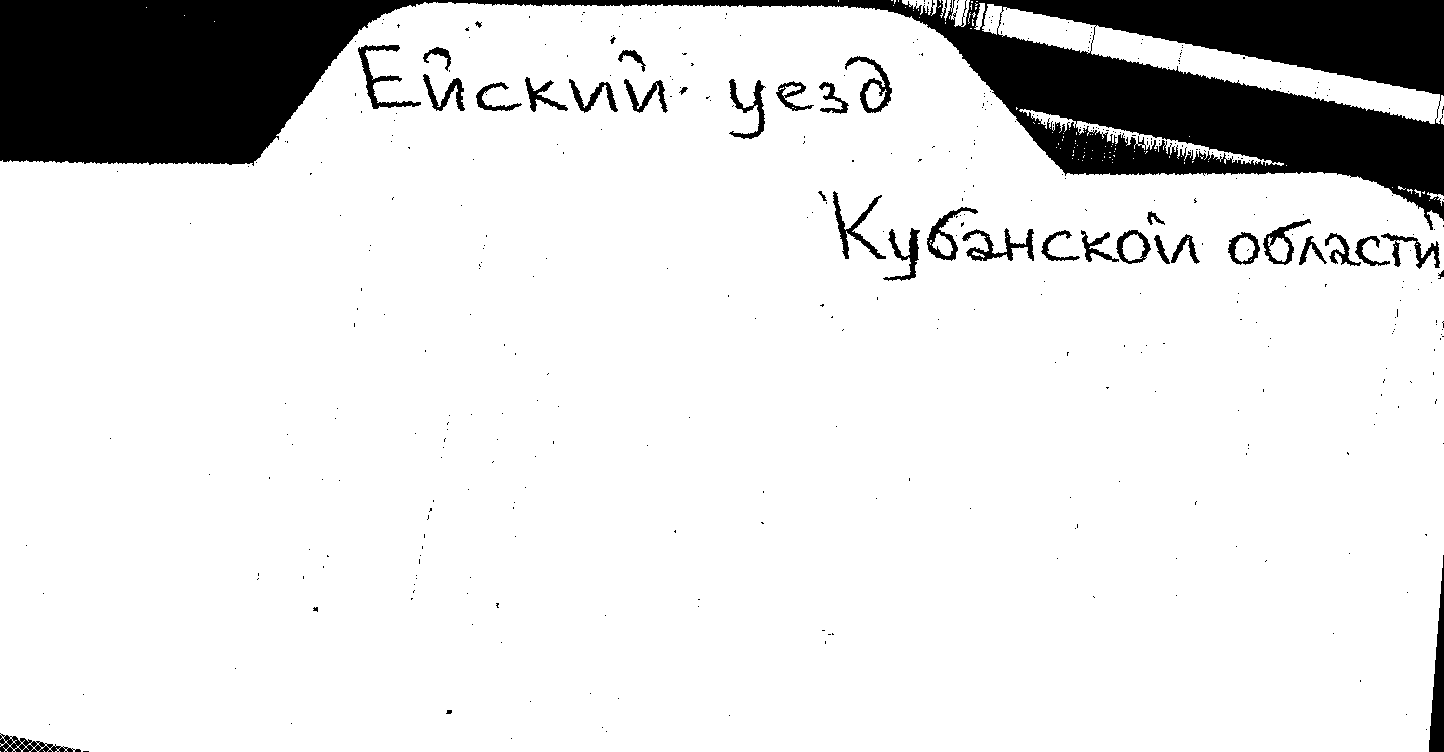 Ейский уезд
Кубанской области